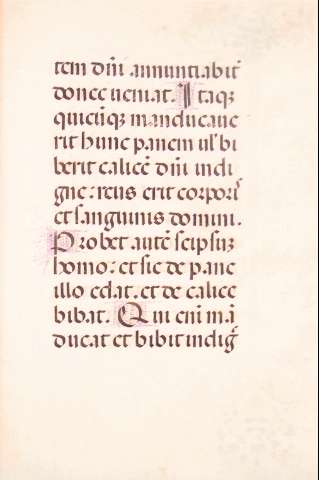 tem dñi annuntiabit̃
donec ueniat. Itaqꝫ
quicũqꝫ manducaue
rit hunc panem ul' bi
berit calicẽ dñi indi
gne: reus erit corporis
et sanguinis domini.
Probet autẽ seipsuꝫ
homo: et sic de pane
illo edat. et de calice
bibat. Qui eni mã
ducat et bibit indig̃